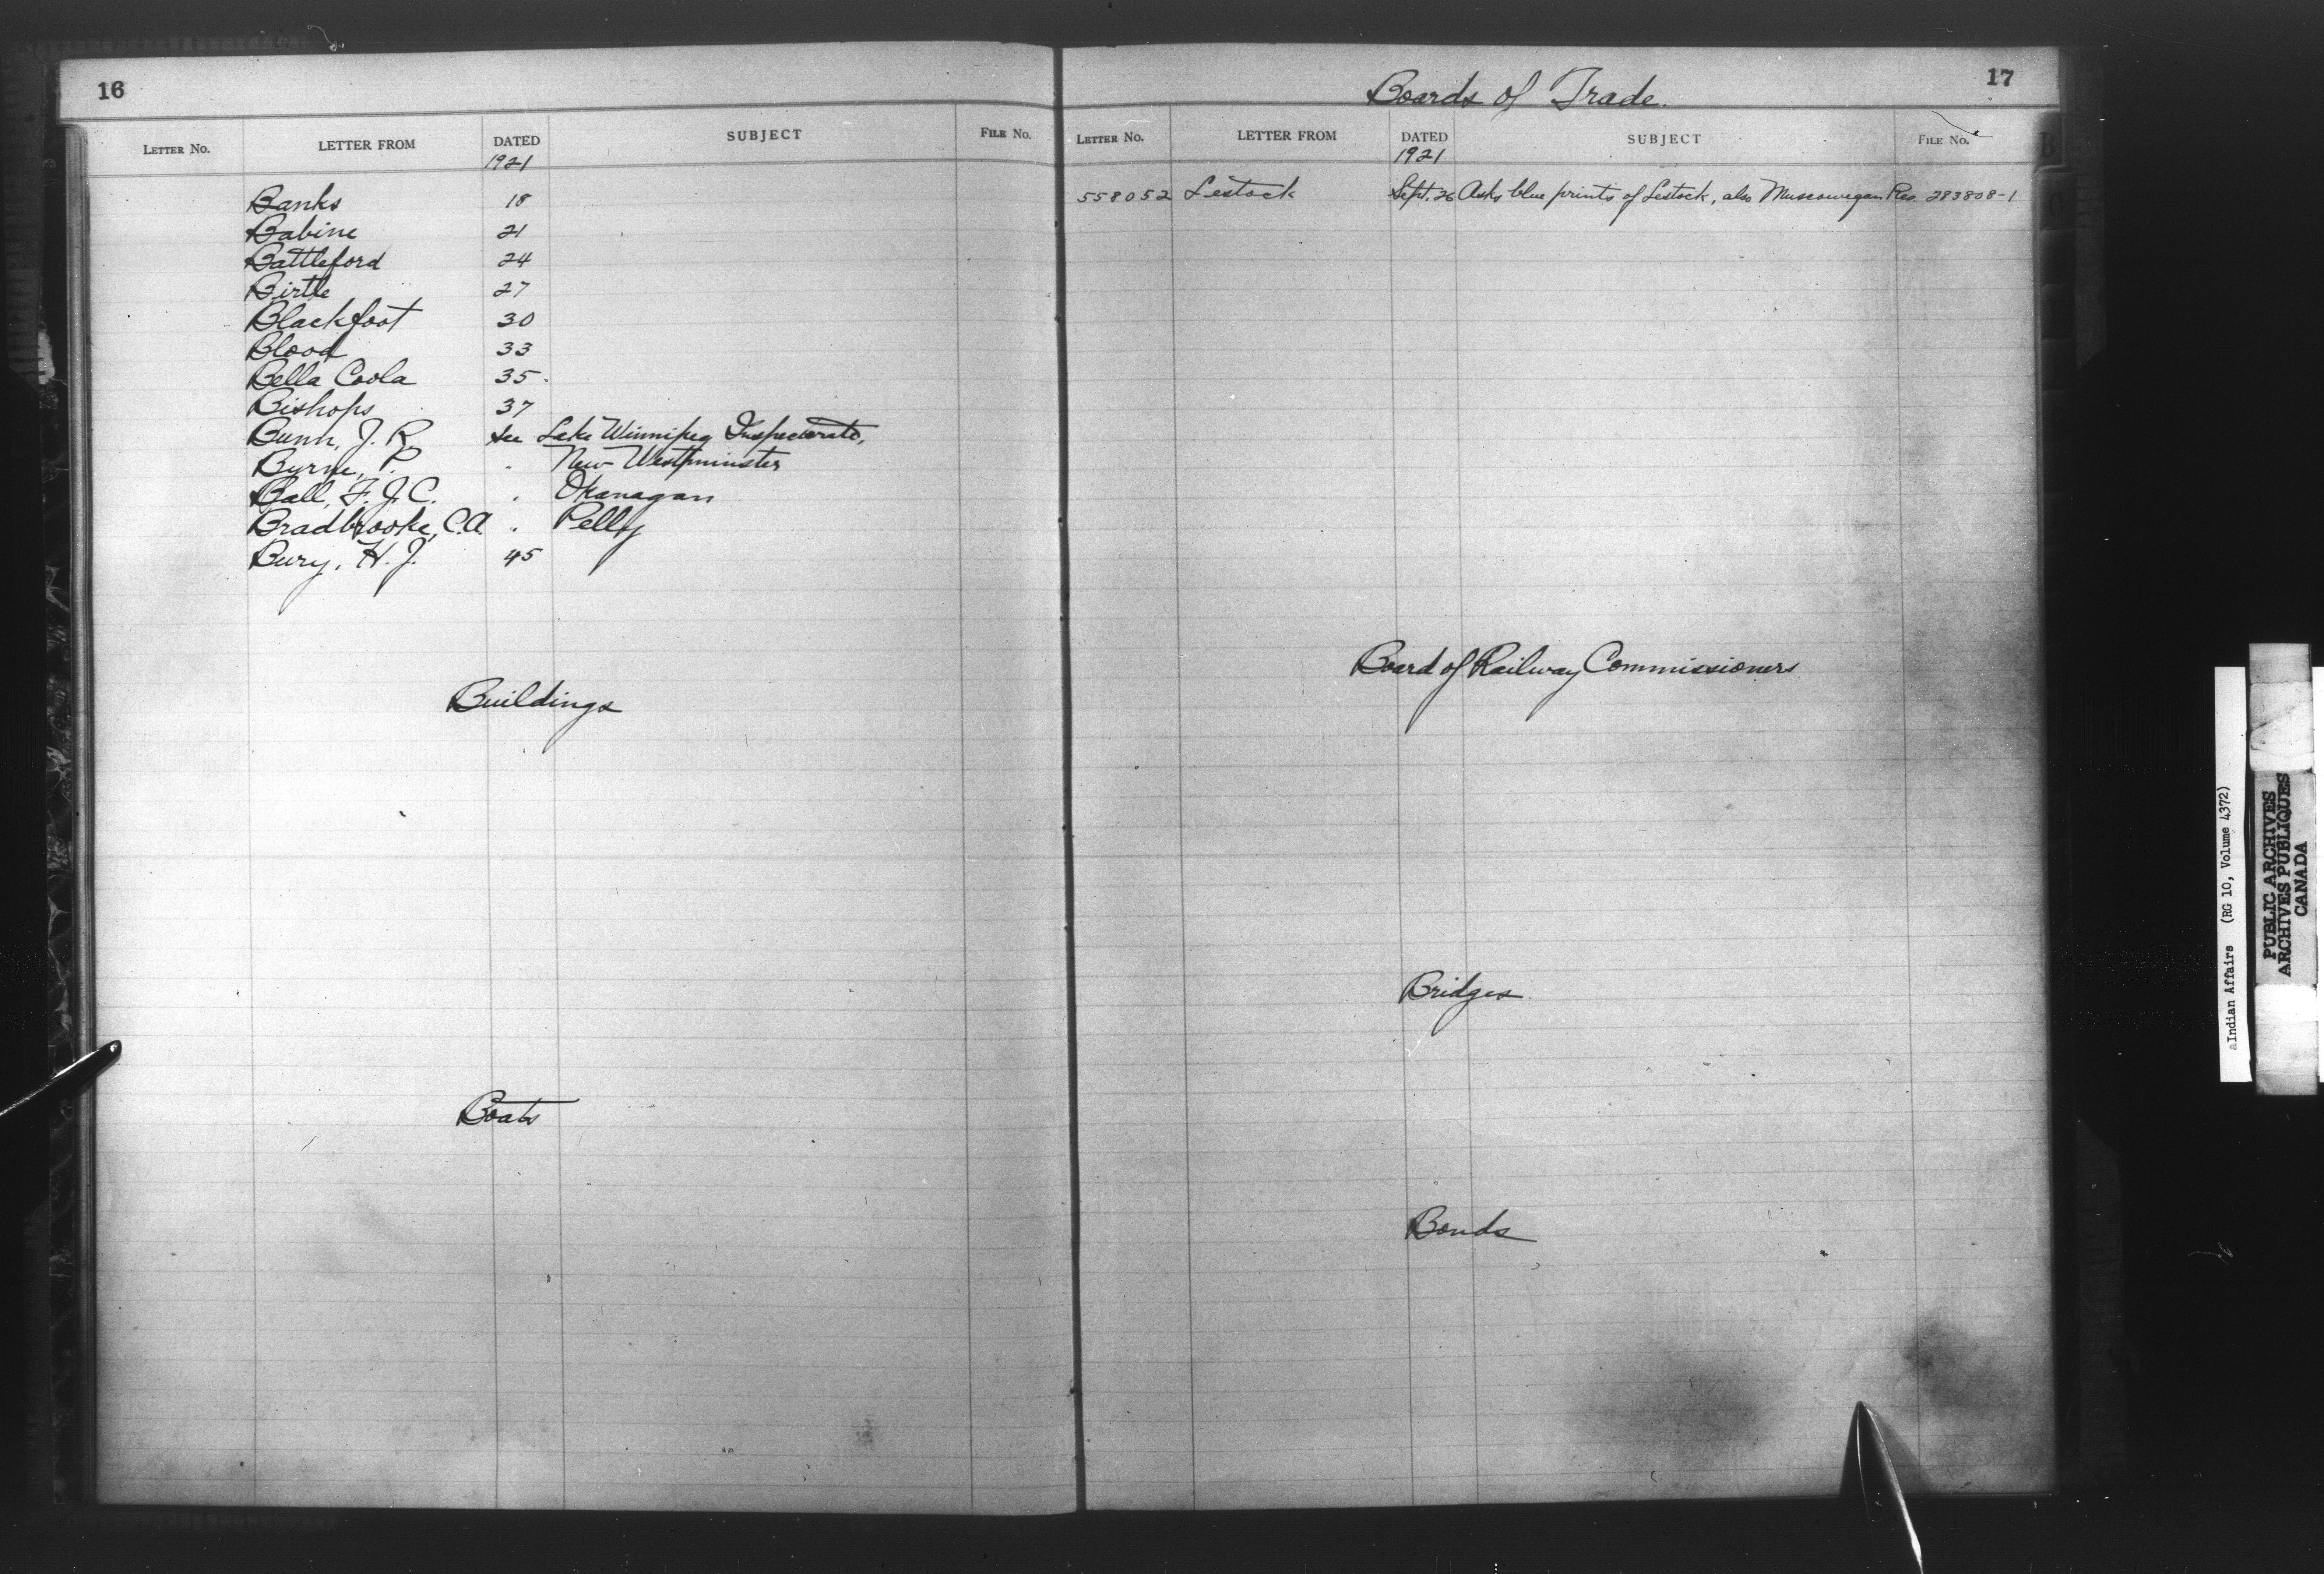 16
LETTER No. LETTER FROM DATED SUBJECT FILE No.
1921
Banks 18
Babine 21
Battleford 24
Birtle 27
Blackfoot 30
Blood 33
Bella Coola 35.
Bishops 37
Bunn, J. R. See Lake Winnipeg Inspectorate,
Byrne, P. . New Westminster
Ball, F. J. C. . Okanagan
Bradbrooke, C.A. . Pelly
Bury, H. J. 45
Buildings
Boats
Boards of Trade.
17
LETTER No. LETTER FROM DATED SUBJECT FILE No.
1921
558052 Lestock Sept. 26 Asks blue prints of Lestock, also Muscowegan Res. 283808-1
Board of Railway Commissioners
Bridges
Bonds
B
aIndian Affairs (RG 10, Volume 4372)
PUBLIC ARCHIVES
ARCHIVES PUBLIQUES
CANADA